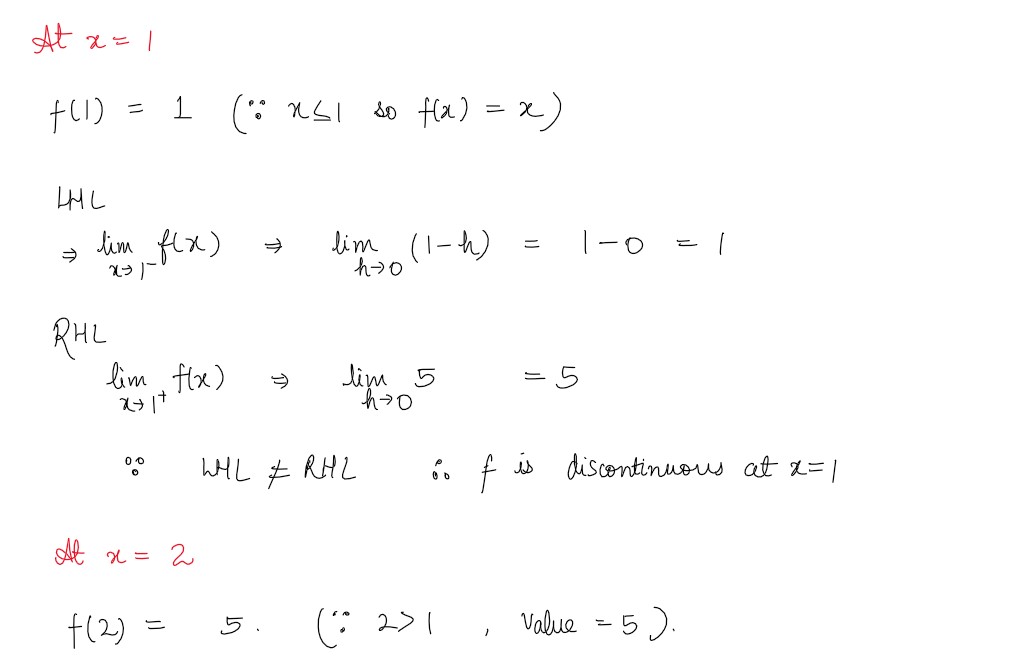 At x = 1
f(1) = 1 (∵ x≤1 so f(x) = x)
LHL
⇒ lim x→1⁻ f(x) ⇒ lim h→0 (1-h) = 1-0 = 1
RHL
lim x→1⁺ f(x) ⇒ lim h→0 5 = 5
∵ LHL ≠ RHL ∴ f is discontinuous at x=1
At x = 2
f(2) = 5. (∵ 2>1, value = 5).